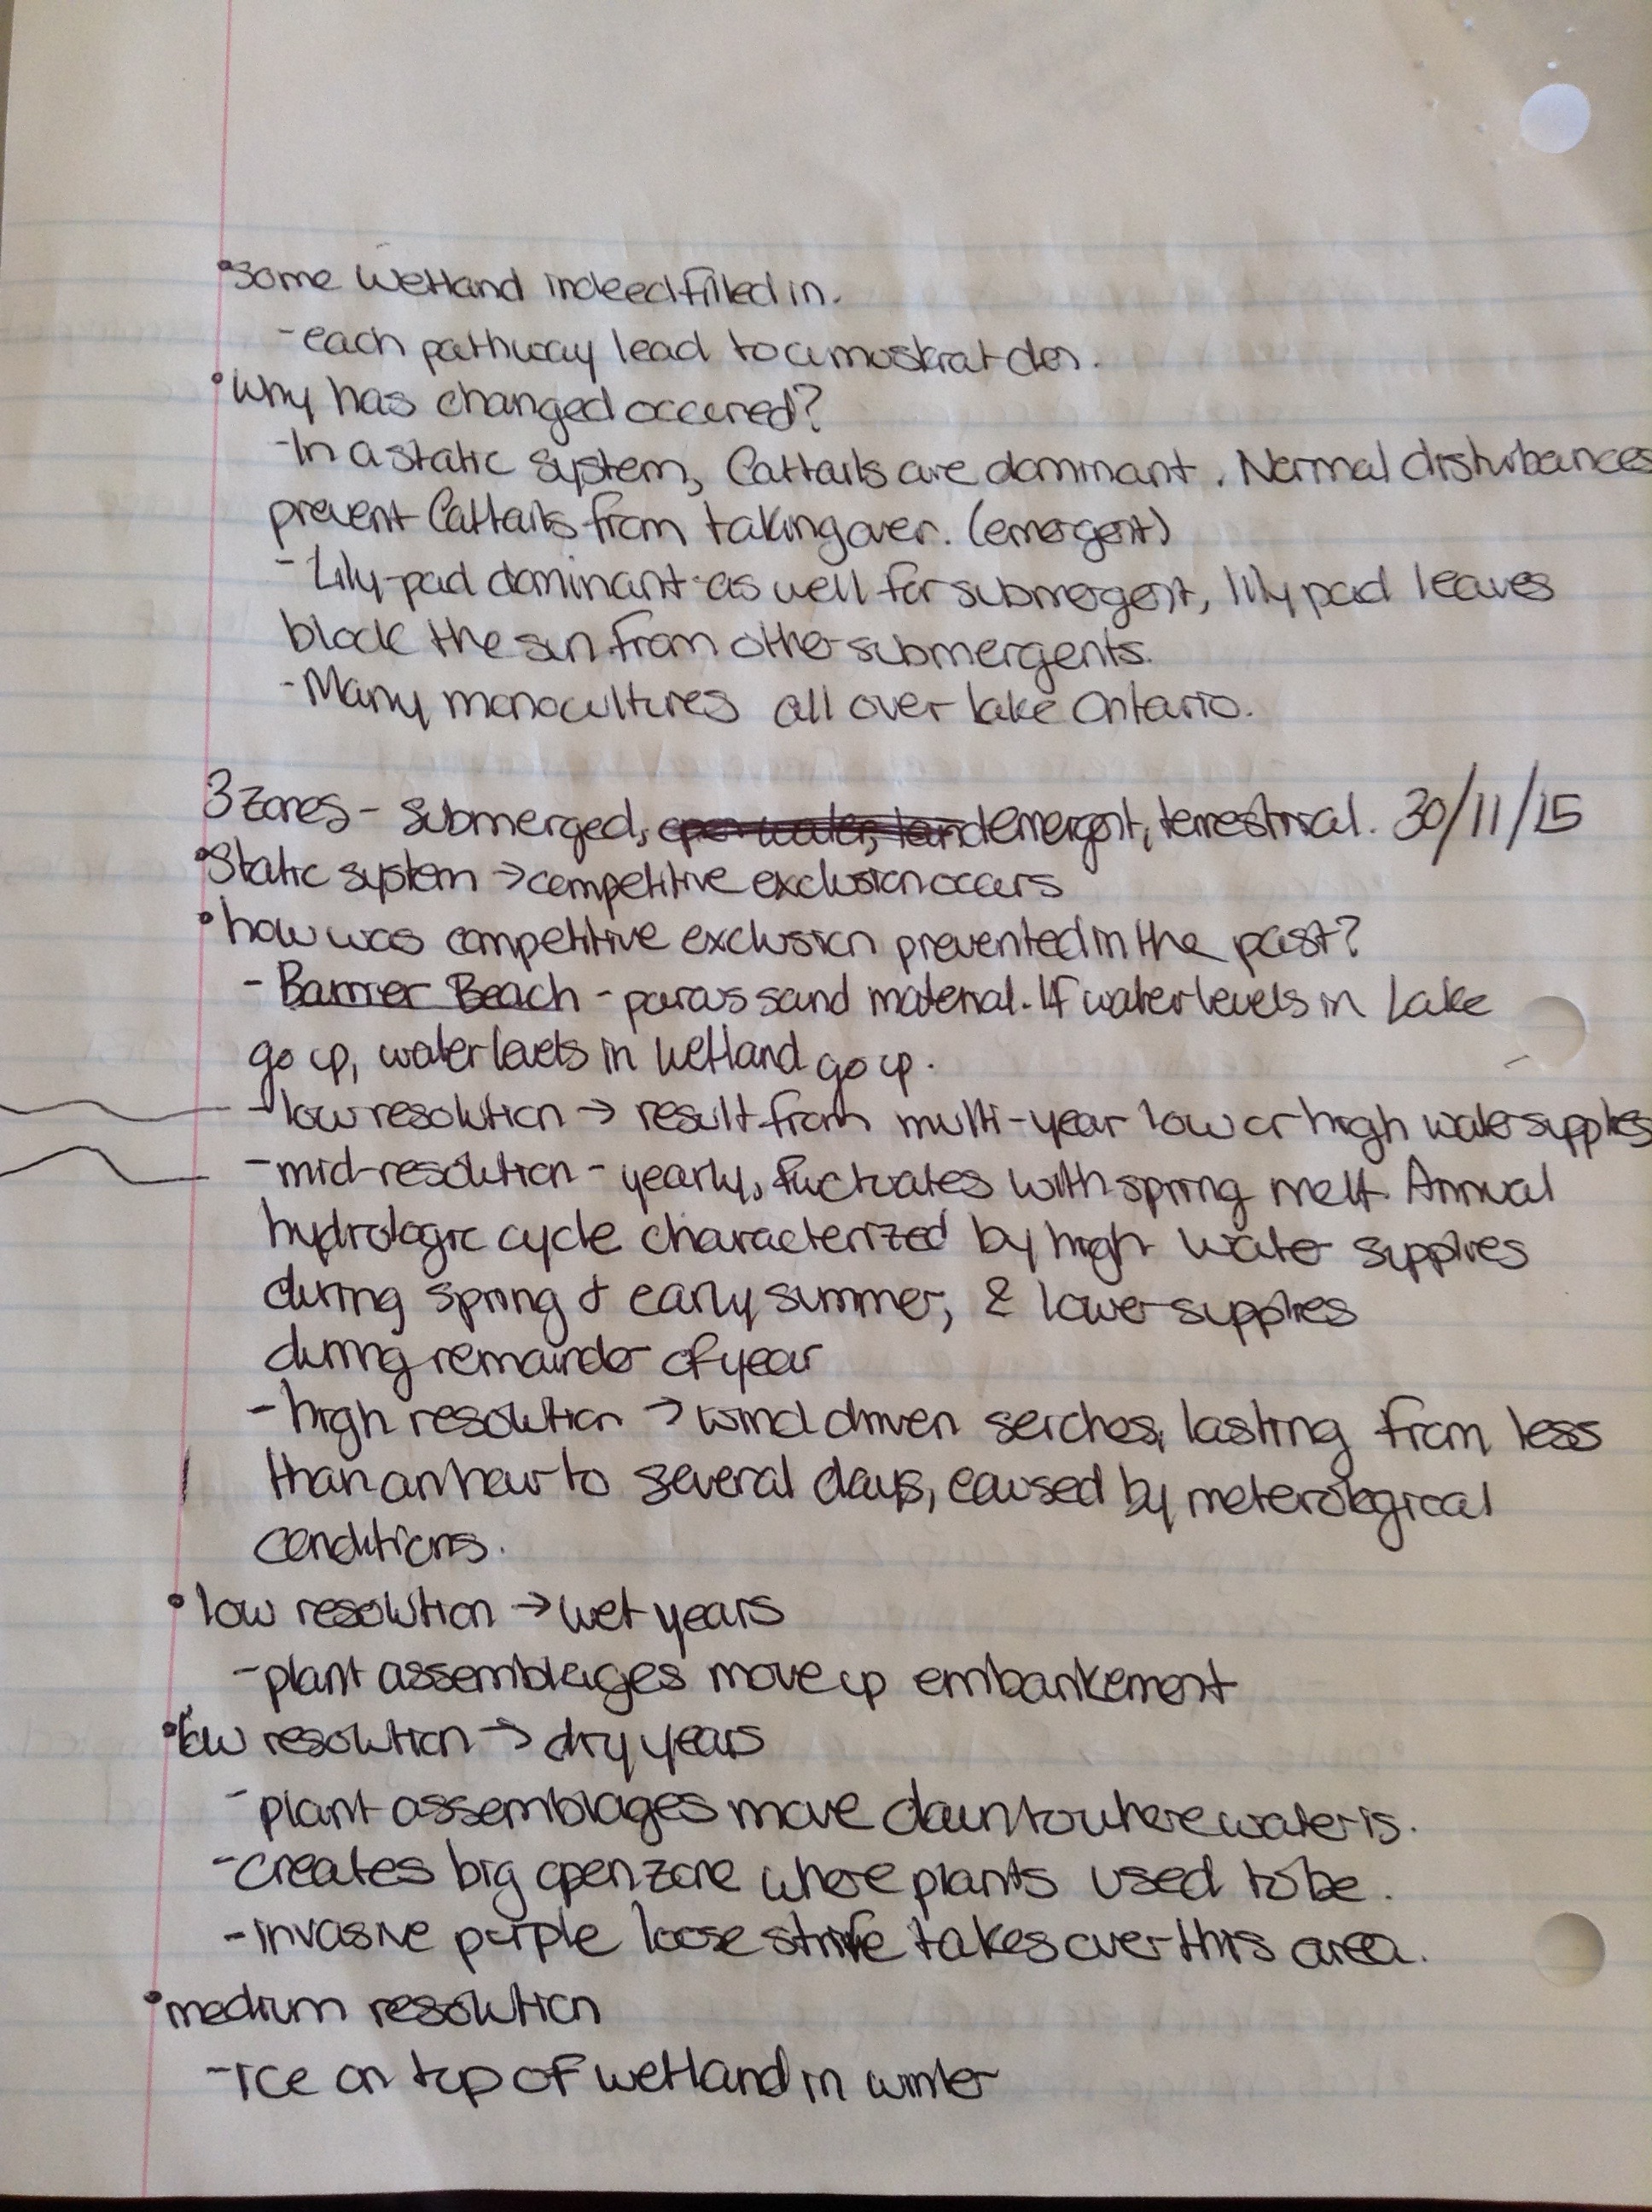 •Some Wetland indeed filled in.
-each pathway lead to a muskrat den.
•Why has changed occured?
-In a static system, Cattails are dominant. Normal disturbances
prevent Cattails from taking over. (emergent)
-Lily-pad dominant as well for submergent, lily pad leaves
block the sun from other submergents.
-Many monocultures all over lake Ontario.
3 zones - Submerged, open water, land emergent, terrestrial. 30/11/15
•Static system → competitive exclusion occurs
•how was competitive exclusion prevented in the past?
- Barrier Beach - porous sand material. If water levels in Lake
go up, water levels in wetland go up.
-low resolution → result from multi-year low or high water supplies
-mid-resolution - yearly, fluctuates with spring melt. Annual
hydrologic cycle characterized by high water supplies
during spring & early summer, & lower supplies
during remainder of year
-high resolution → wind driven seiches, lasting from less
than an hour to several days, caused by meterological
conditions.
•low resolution → wet years
-plant assemblages move up embankement
•low resolution → dry years
-plant assemblages move down to where water is.
-creates big open zone where plants used to be.
-invasive purple loose strife takes over this area.
•medium resolution
-Ice on top of wetland in winter